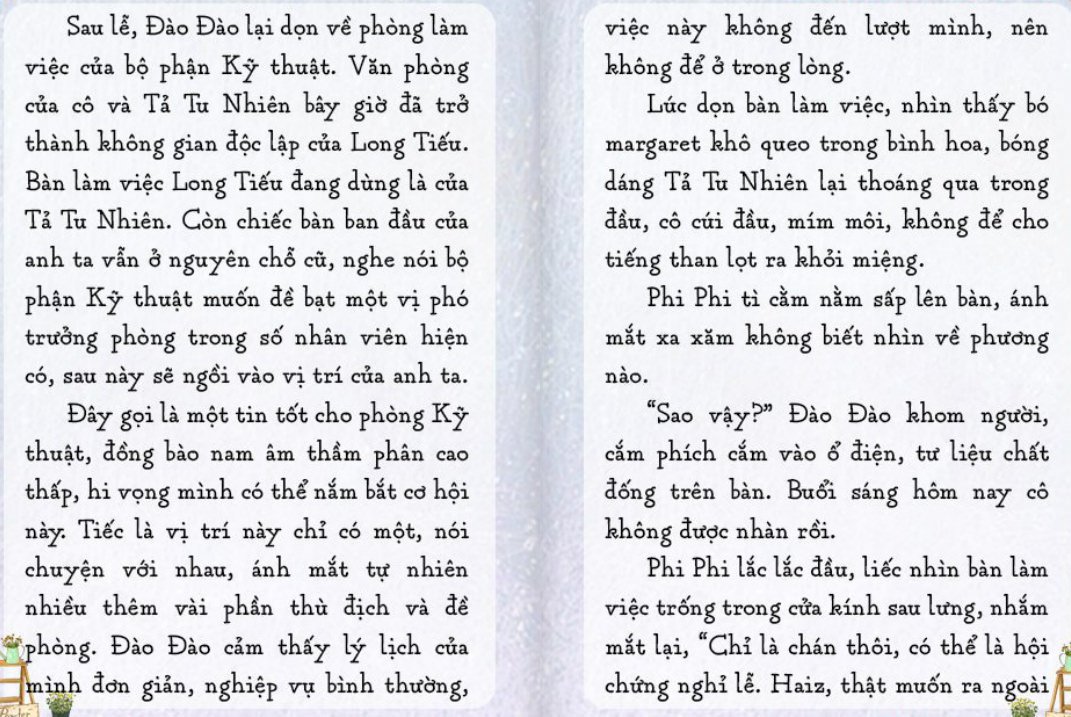 Sau lễ, Đào Đào lại dọn về phòng làm
việc của bộ phận Kỹ thuật. Văn phòng
của cô và Tả Tu Nhiên bây giờ đã trở
thành không gian độc lập của Long Tiếu.
Bàn làm việc Long Tiếu đang dùng là của
Tả Tu Nhiên. Còn chiếc bàn ban đầu của
anh ta vẫn ở nguyên chỗ cũ, nghe nói bộ
phận Kỹ thuật muốn đề bạt một vị phó
trưởng phòng trong số nhân viên hiện
có, sau này sẽ ngồi vào vị trí của anh ta.
Đây gọi là một tin tốt cho phòng Kỹ
thuật, đồng bào nam âm thầm phân cao
thấp, hi vọng mình có thể nắm bắt cơ hội
này. Tiếc là vị trí này chỉ có một, nói
chuyện với nhau, ánh mắt tự nhiên
nhiều thêm vài phần thù địch và đề
phòng. Đào Đào cảm thấy lý lịch của
mình đơn giản, nghiệp vụ bình thường,
việc này không đến lượt mình, nên
không để ở trong lòng.
Lúc dọn bàn làm việc, nhìn thấy bó
margaret khô queo trong bình hoa, bóng
dáng Tả Tu Nhiên lại thoáng qua trong
đầu, cô cúi đầu, mím môi, không để cho
tiếng than lọt ra khỏi miệng.
Phi Phi tì cằm nằm sấp lên bàn, ánh
mắt xa xăm không biết nhìn về phương
nào.
“Sao vậy?” Đào Đào khom người,
cắm phích cắm vào ổ điện, tư liệu chất
đống trên bàn. Buổi sáng hôm nay cô
không được nhàn rồi.
Phi Phi lắc lắc đầu, liếc nhìn bàn làm
việc trống trong cửa kính sau lưng, nhắm
mắt lại, “Chỉ là chán thôi, có thể là hội
chứng nghỉ lễ. Haiz, thật muốn ra ngoài